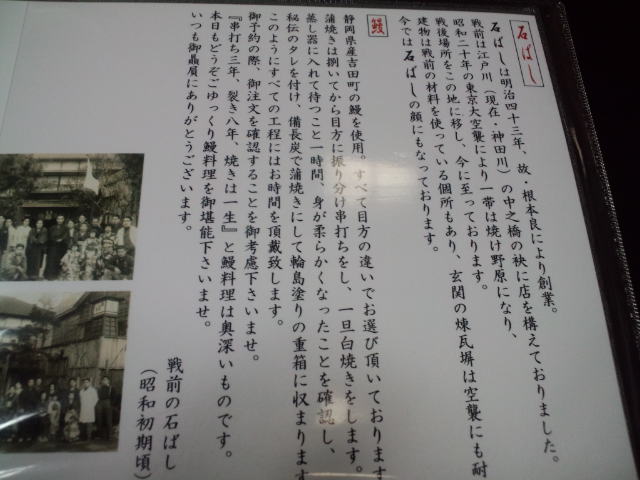 石ばし
石ばしは明治四十三年、故・根本良により創業。
戦前は江戸川（現在・神田川）の中之橋の袂に店を構えておりました。
昭和二十年の東京大空襲により一帯は焼け野原になり、
戦後場所をこの地に移し、今に至っております。
建物は戦前の材料を使っている個所もあり、玄関の煉瓦塀は空襲にも耐
今では石ばしの顔にもなっております。
鰻
静岡県産吉田町の鰻を使用。すべて目方の違いでお選び頂いております
蒲焼きは捌いてから目方に振り分け串打ちをし、一旦白焼きをします。
蒸し器に入れて待つこと一時間、身が柔らかくなったことを確認し、
秘伝のタレを付け、備長炭で蒲焼きにして輪島塗りの重箱に収まります
このようにすべての工程にはお時間を頂戴致します。
御予約の際、御注文を確認することを御考慮下さいませ。
『串打ち三年、裂き八年、焼きは一生』と鰻料理は奥深いものです。
本日もどうぞごゆっくり鰻料理を御堪能下さいませ。
いつも御贔屓にありがとうございます。
戦前の石ばし
（昭和初期頃）